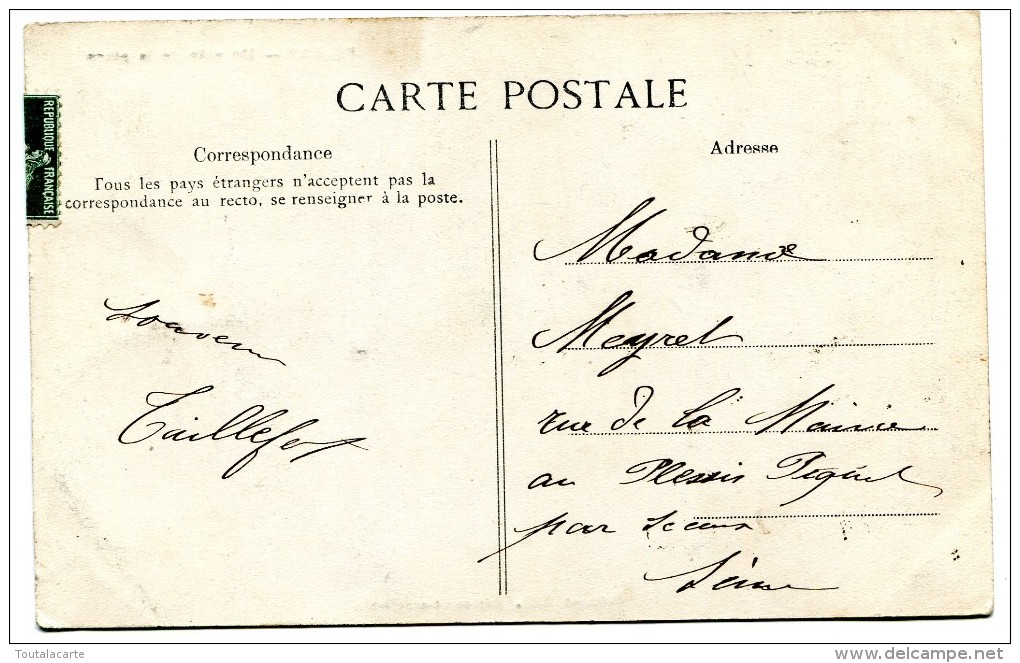 CARTE POSTALE
Correspondance
Tous les pays étrangers n'acceptent pas la
correspondance au recto, se renseigner à la poste.
REPUBLIQUE FRANÇAISE
Souvenir
Taillefer
Adresse
Madame
Meyret
rue de la Mairie
au Plessis Piquet
par Sceaux
Seine
Toutalacarte
www.delcampe.net